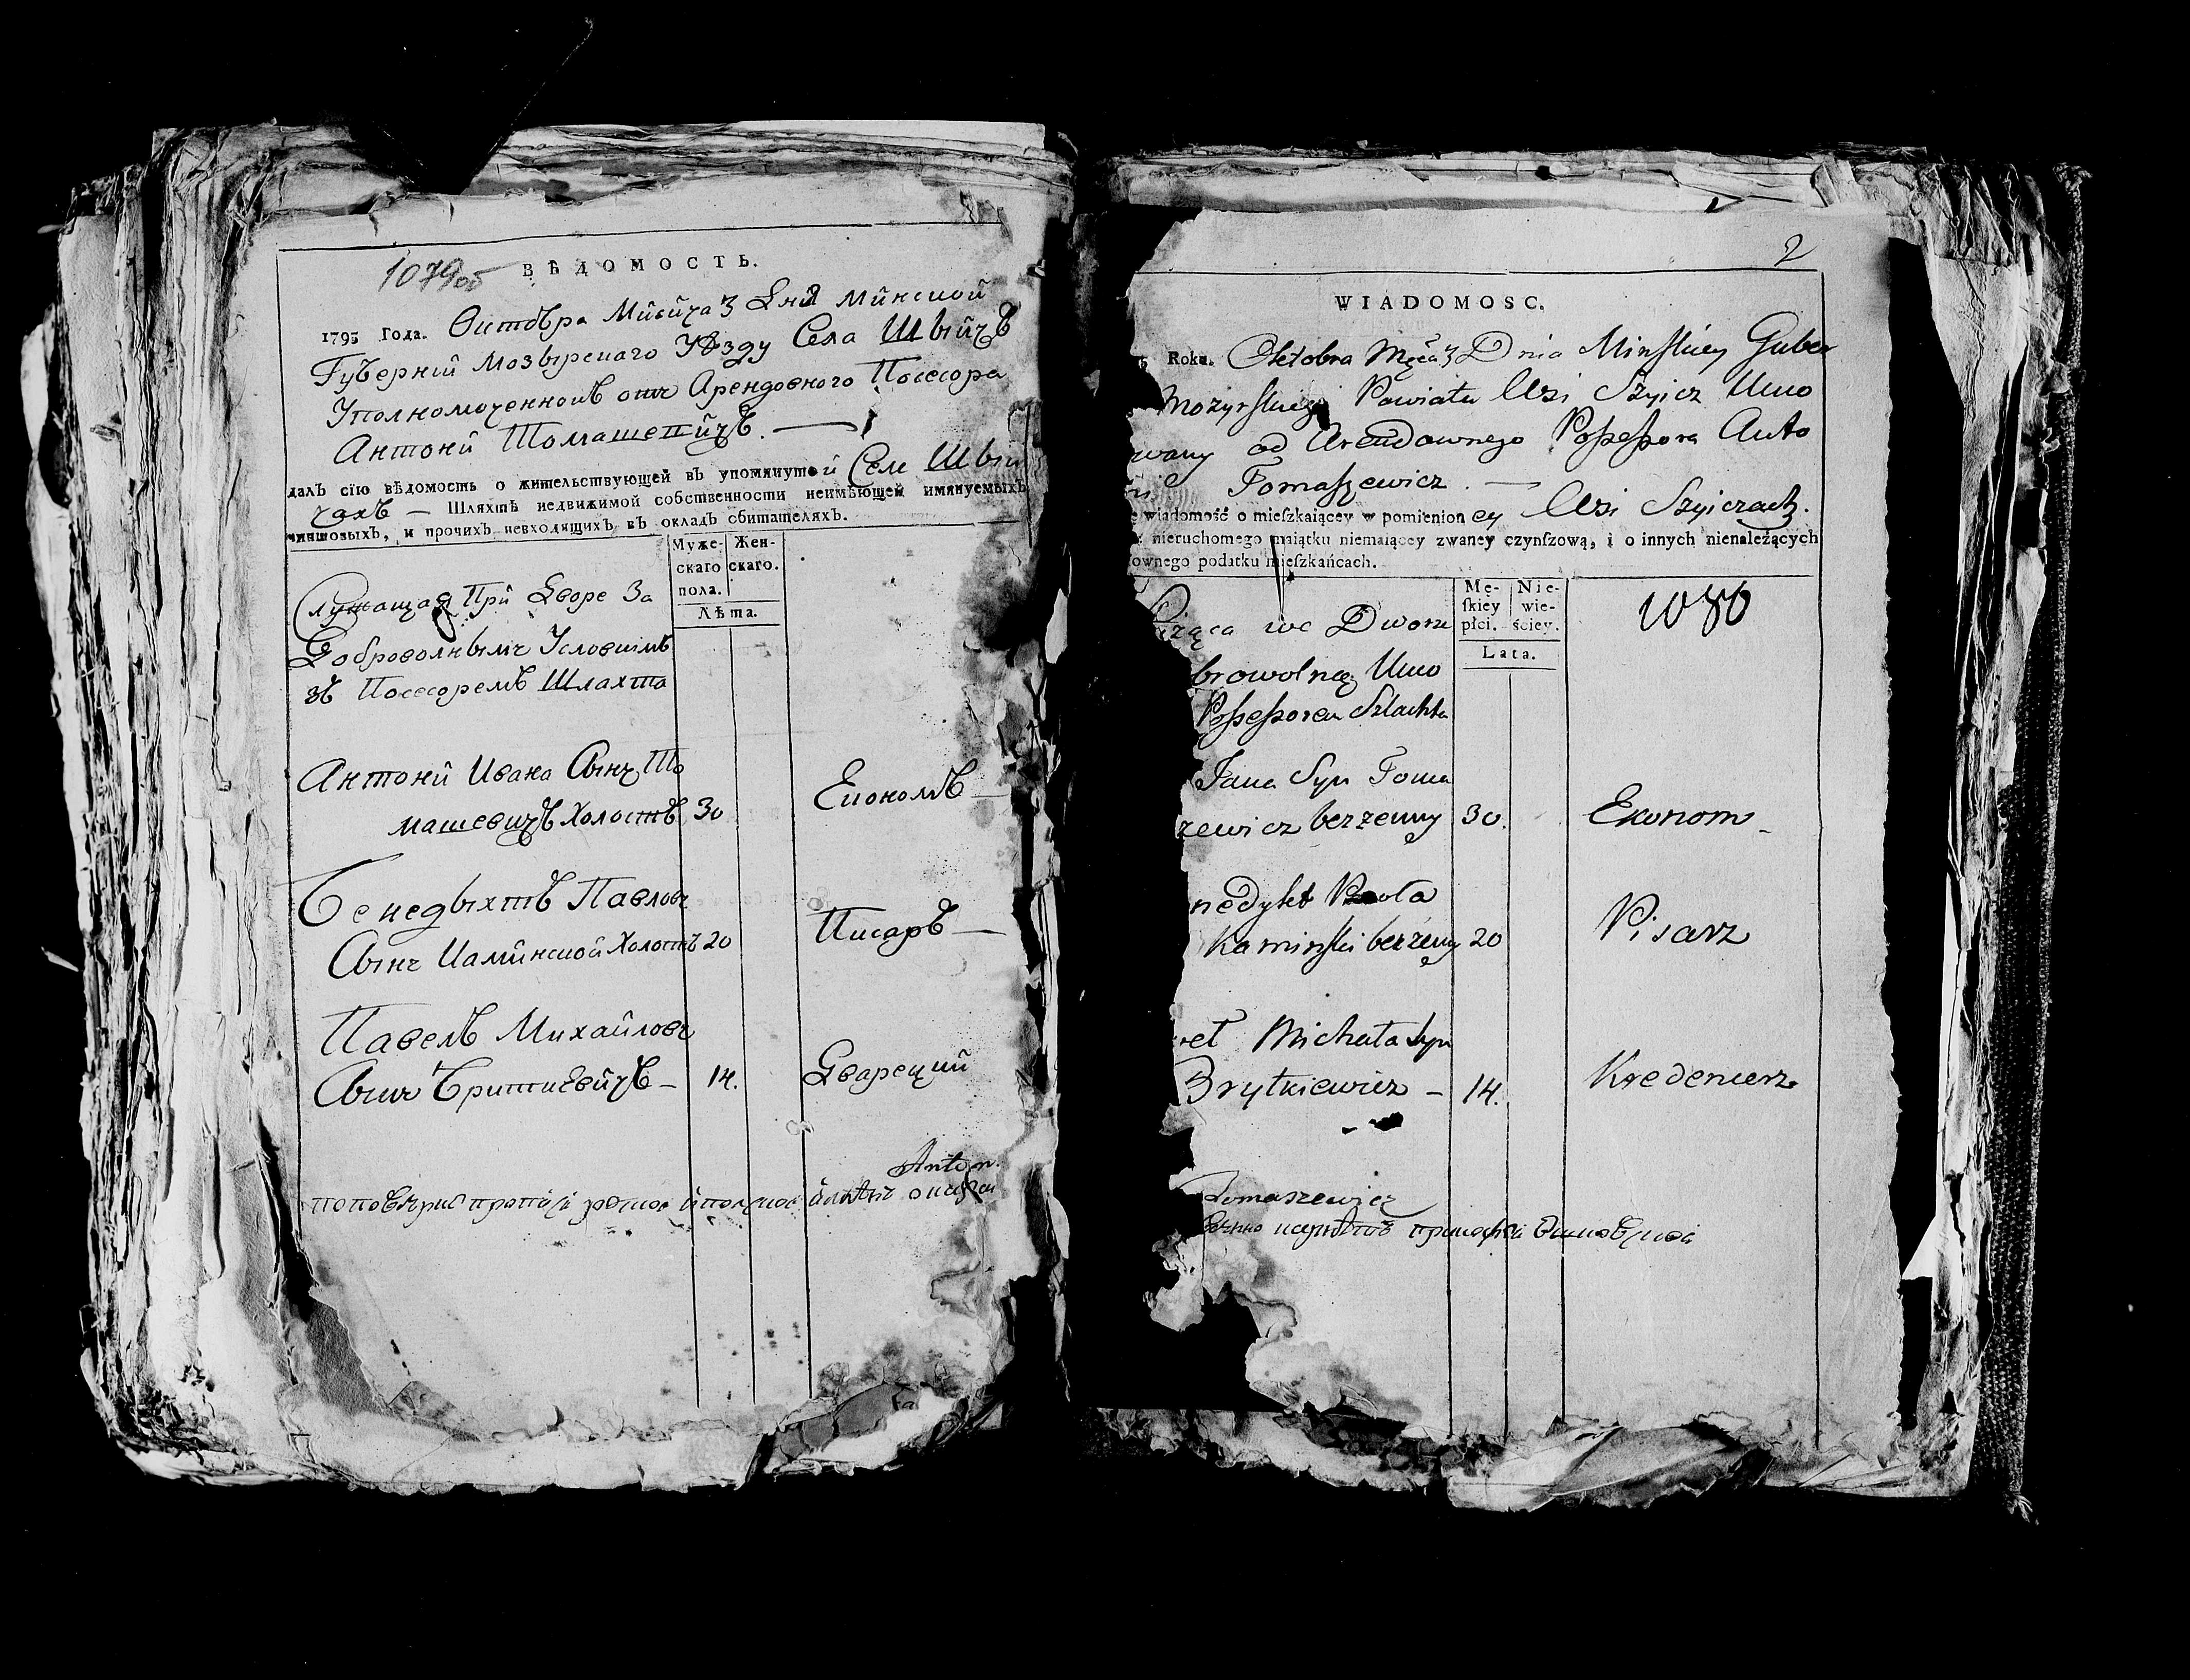 1079об
ВѢДОМОСТЬ.
1795 Года. Октобра Мйсйца 3 Дня Мйнской
Губернй Мозырскаго Уѣзду Села Шыйчъ
Уполномоченной отъ Арендовного Посесора
Антонй Томашевйчъ.
далъ сїю вѣдомость о жительствующей въ упомянутой Селе Шый
чахъ — Шляхтѣ недвижимой собственности неимѣющей имянуемыхъ
чиншовыхъ, и прочихъ невходящихъ въ окладъ обитателяхъ.
Муже-
скаго
пола.
Жен-
скаго.
Лѣта.
Служащая Прй Дворе За
Доброволнымъ Условіимъ
зъ Посесоремъ Шлахта
Антонй Ивана Сынъ То
машевичъ Холостъ 30 Економъ —
Бенедыхтъ Павловъ
Сынъ Камйнской Холостъ 20 Писаръ —
Павелъ Михайловъ
Сынъ Бриткевйчъ — 14. Дварецкий
Anton.
2
WIADOMOSC.
5 Roku. Oktobra Mca 3 Dnia Minskiey Guber
Mozyrskiego Powiatu Wsi Szyicz Umo
wany od Arendownego Possessora Anto
ni Tomaszewicz. —
e wiadomość o mieſzkaiącey w pomienioney Wsi Szyiczach.
nieruchomego maiątku niemaiącey zwaney czynſzową, i o innych nienależących
ownego podatku mieſzkańcach.
Mę-
ſkiey
płci.
Nie-
wie-
ściey.
Lata.
1080
żąca we Dworze
browolną Umo
Possessorem Szlachta
Jana Syn Toma
zewicz bezzenny 30. Ekonom
nedykt Pawła
Kaminski bezżenny 20 Pisarz
weł Michała Syn
Brytkiewicz — 14. Kredencerz
Tomaszewicz